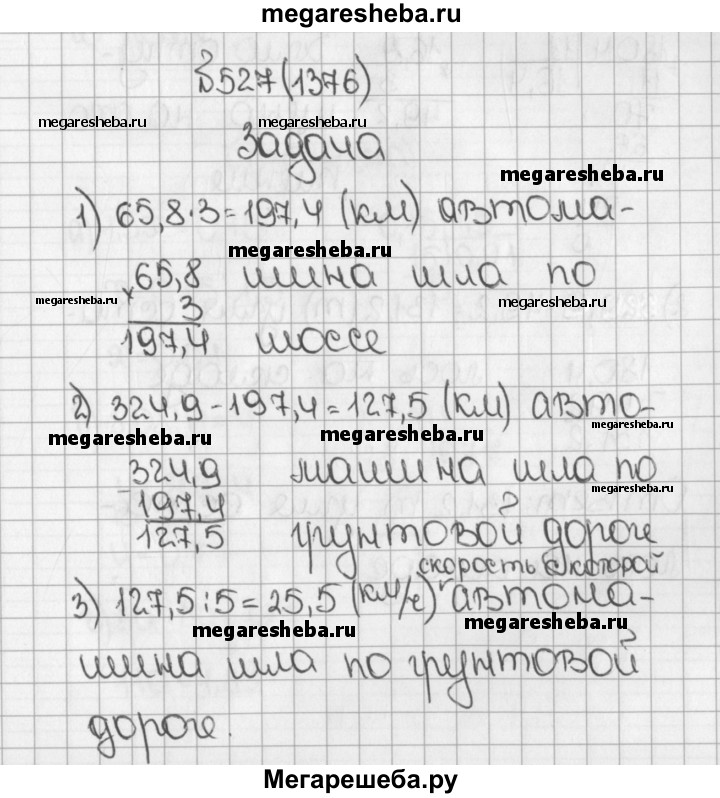 megaresheba.ru
№527(1376)
megaresheba.ru megaresheba.ru
Задача
megaresheba.ru
1) 65,8·3=197,4 (км) автома-
megaresheba.ru
× 65,8 шина шла по
megaresheba.ru 3 megaresheba.ru
197,4 шоссе
2) 324,9-197,4=127,5 (км) авто-
megaresheba.ru megaresheba.ru megaresheba.ru
- 324,9 машина шла по
197,4 megaresheba.ru
127,5 грунтовой дороге
скорость с которой
3) 127,5:5=25,5 (км/ч) автома-
megaresheba.ru megaresheba.ru
шина шла по грунтовой
дороге.
Мегарешеба.ру